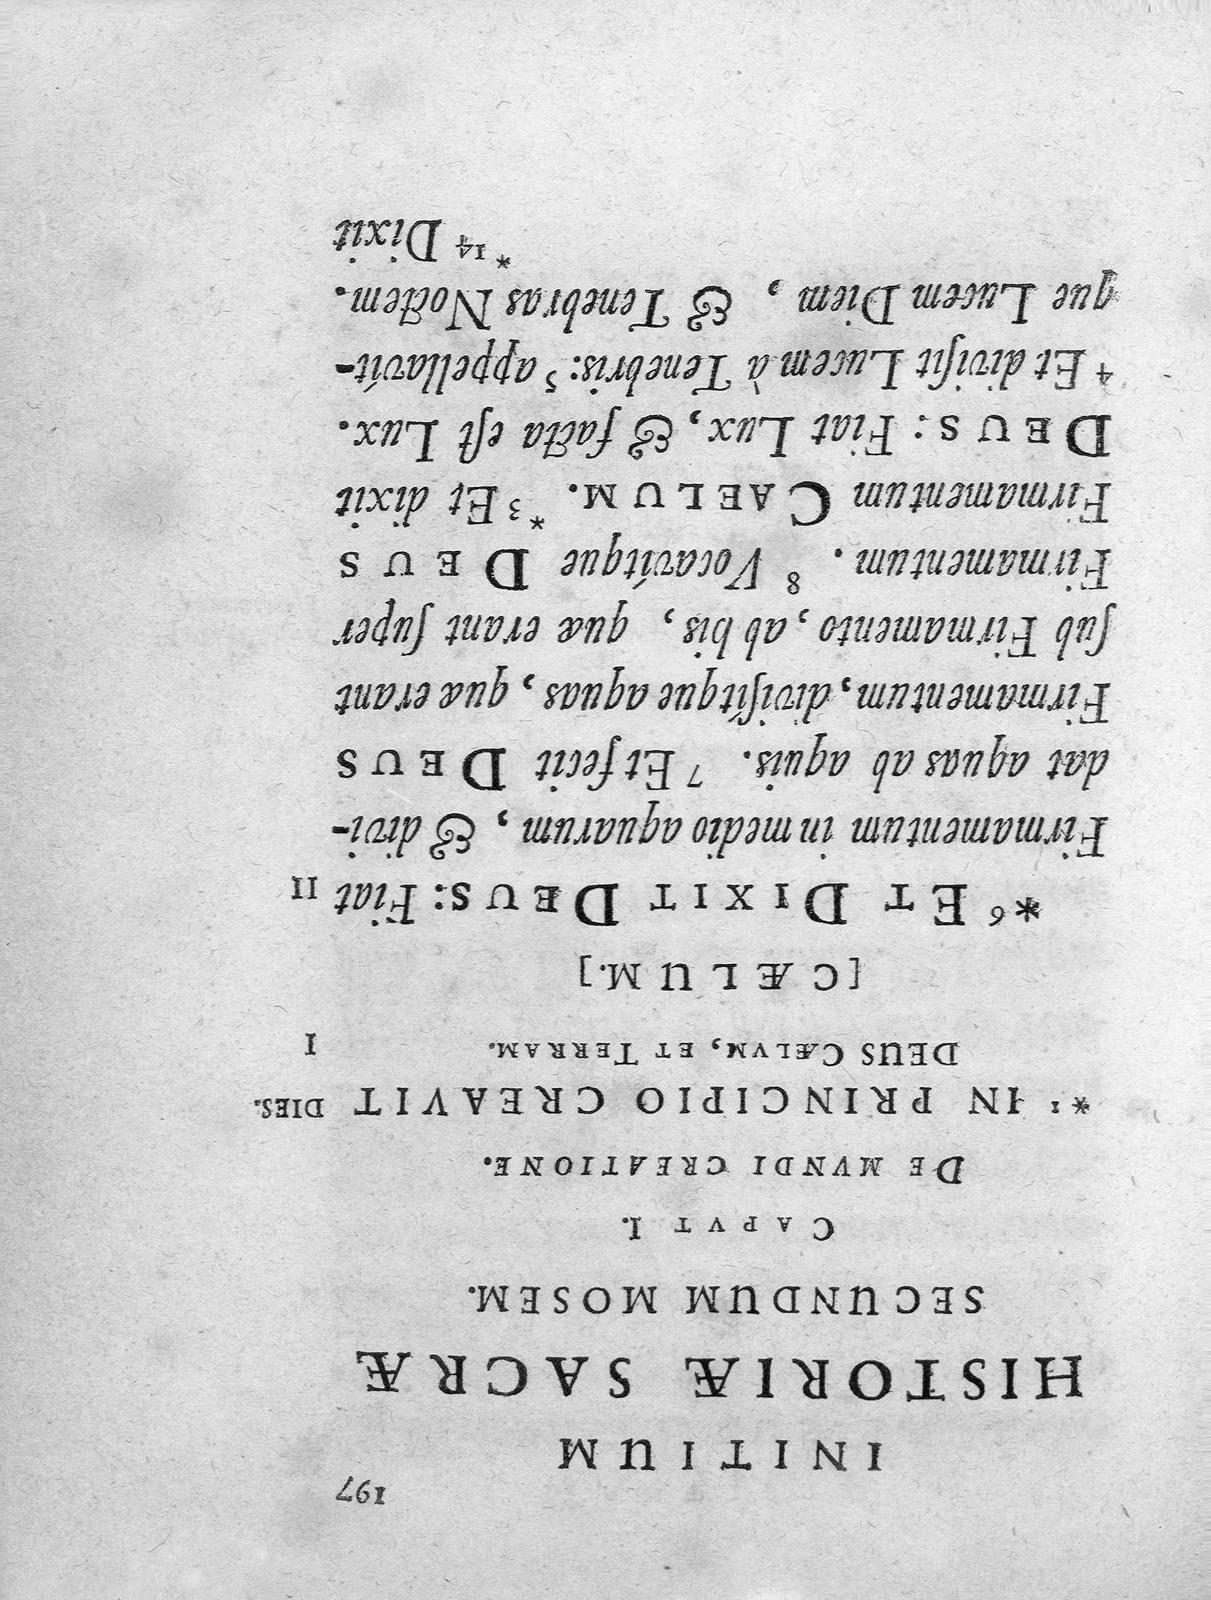 197
INITIUM
HISTORIÆ SACRÆ
SECUNDUM MOSEM.
CAPVT I.
DE MVNDI CREATIONE.
*¹ IN PRINCIPIO CREAVIT DIES.
DEUS CÆLVM, ET TERRAM. I
[CÆLUM.]
*⁶ ET DIXIT DEUS: Fiat II
Firmamentum in medio aquarum, & divi-
dat aquas ab aquis. ⁷ Et fecit DEUS
Firmamentum, divisítque aquas, quæ erant
ſub Firmamento, ab his, quæ erant ſuper
Firmamentum. ⁸ Vocavítque DEUS
Firmamentum CAELUM. *³ Et dixit
DEUS: Fiat Lux, & facta eſt Lux.
⁴ Et diviſit Lucem à Tenebris: ⁵ appellavít-
que Lucem Diem, & Tenebras Noctem.
*¹⁴ Dixit